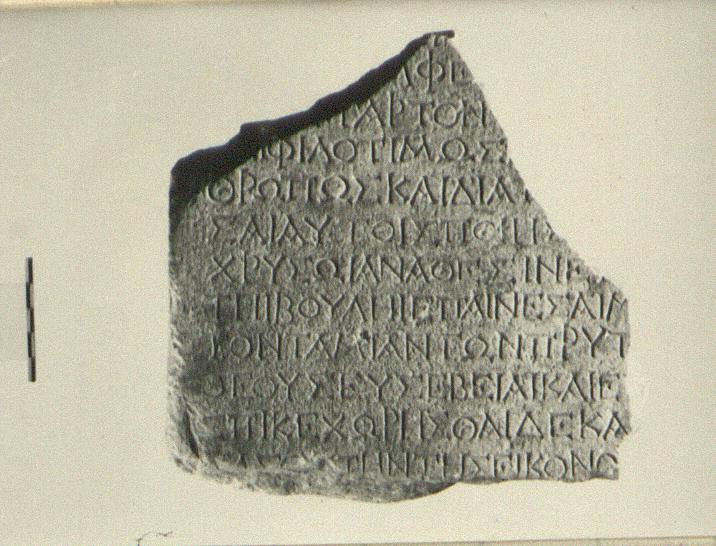 ΛΦΙ
ΓΑΡΤΟΝ
ΦΙΛΟΤΙΜΩΣ
ΘΡΩΠΩΣΚΑΙΔΙΑ
ΣΑΙΑΥΤΟΙΣΠΟΗΣ
ΧΡΥΣΩΙΑΝΑΘΕΣΙΝΕ
ΤΗΙΒΟΥΛΗΙΕΠΑΙΝΕΣΑΙΜ
ΤΟΝΤΑΜΙΑΝΤΩΝΠΡΥΤ
ΘΕΟΥΣΕΥΣΕΒΕΙΑΙΚΑΙΕ
ΕΠΙΚΕΧΩΡΗΣΘΑΙΔΕΚΑ
ΤΗΝΤΗΣΕΙΚΟΝΟ